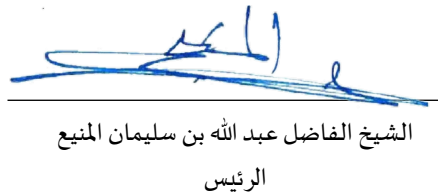 الشيخ الفاضل عبد الله بن سليمان المنيع
الرئيس